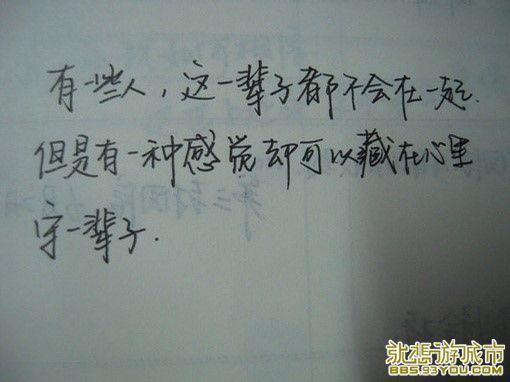 有一些人，这一辈子都不会在一起.
但是有一种感觉却可以藏在心里
守一辈子.
就想游城市
BBS.93YOU.COM